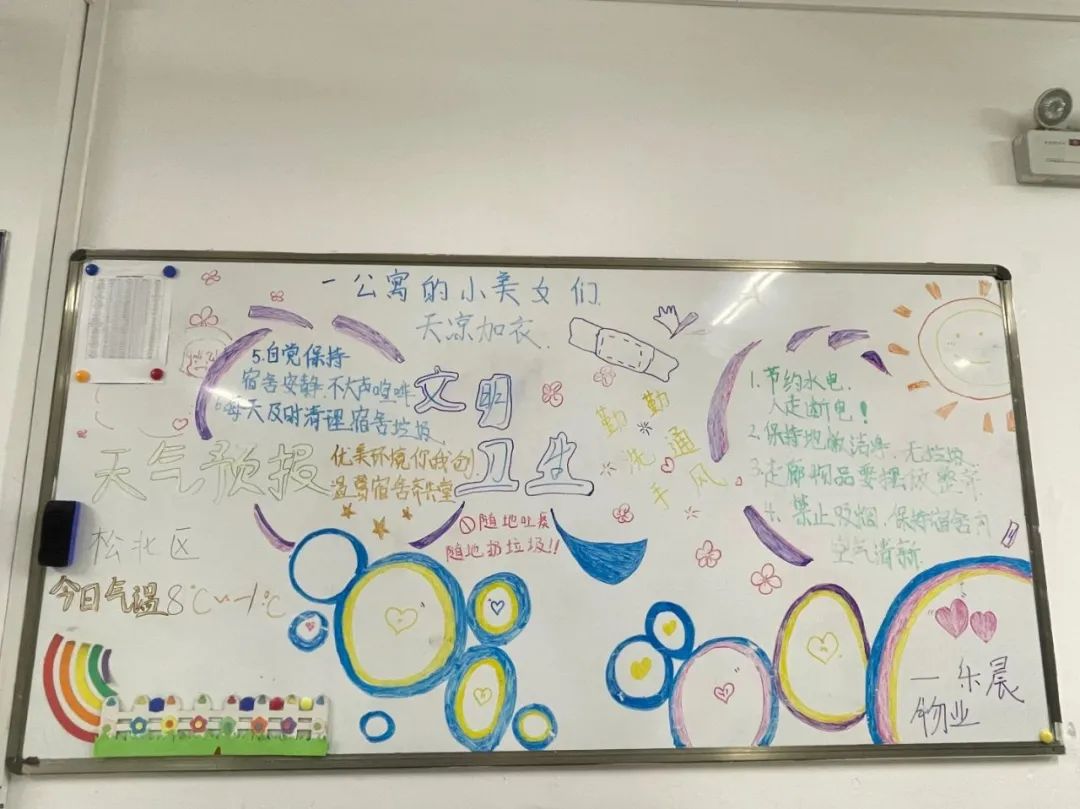 一公寓的小美女们
天凉加衣.
5.自觉保持
宿舍安静.不大声喧哗
6.每天及时清理宿舍垃圾
文明
卫生
优美环境你我创
温馨宿舍齐共堂
天气预报
松北区
今日气温8℃~-1℃
随地吐痰
随地扔垃圾!!
勤洗手
勤通风
1.节约水电.
人走断电!
2.保持地面洁净.无垃圾
3.走廊物品要摆放整齐
4.禁止吸烟.保持宿舍内
空气清新
一乐晨
物业